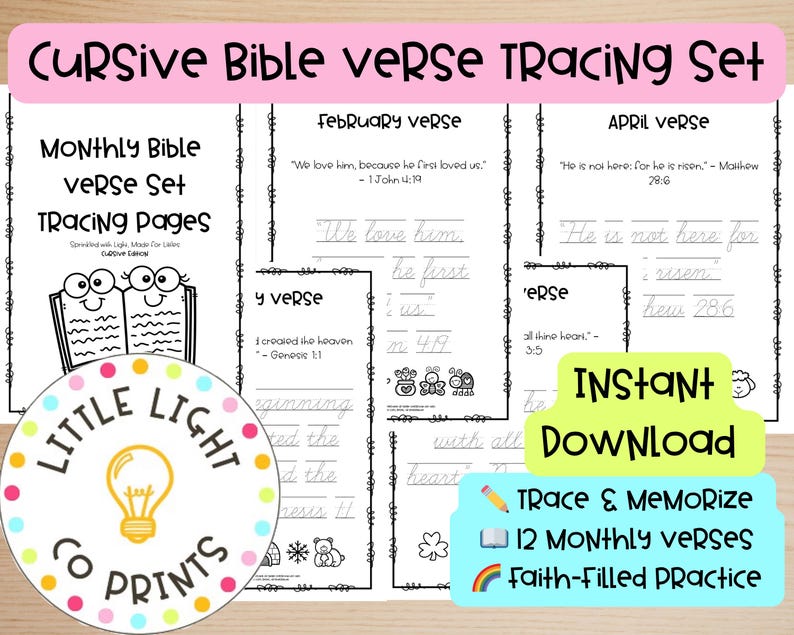 Cursive Bible Verse Tracing Set
Monthly Bible
Verse Set
Tracing Pages
Sprinkled with Light, Made for Littles
Cursive Edition
February Verse
"We love him, because he first loved us."
- 1 John 4:19
"We love him,
he first
us."
4:19
April Verse
"He is not here: for he is risen." - Matthew
28:6
"He is not here: for
risen."
28:6
Verse
created the heaven
- Genesis 1:1
the
the
1:1
all thine heart." -
3:5
with all
heart."
Instant
Download
Trace & Memorize
12 Monthly Verses
Faith-Filled Practice
Little Light
Co Prints